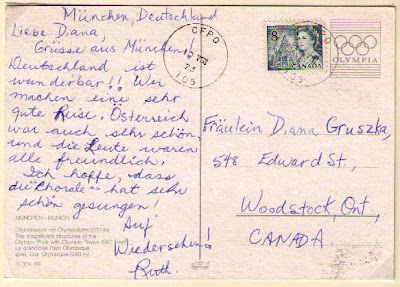 München Deutschland
Liebe Diana,
Grüsse aus München!
Deutschland ist
wunderbar!! Wir
machen eine sehr
gute Reise. Österreich
war auch sehr schön
und die Leute waren
alle freundlich.
Ich hoffe, dass
die "Chorale" hat sehr
schön gesungen!
Auf
Wiedersehen!
Ruth
MÜNCHEN - MUNICH
Olympiapark mit Olympiaturm (290 m)
The magnificent structures of the
Olympic Park with Olympic Tower
Le grandiose Parc Olympique
avec tour Olympique (290 m)
CFPO
VIII
73
105
8
CANADA
OLYMPIA
Fräulein Diana Gruszka,
548 Edward St.,
Woodstock, Ont,
CANADA